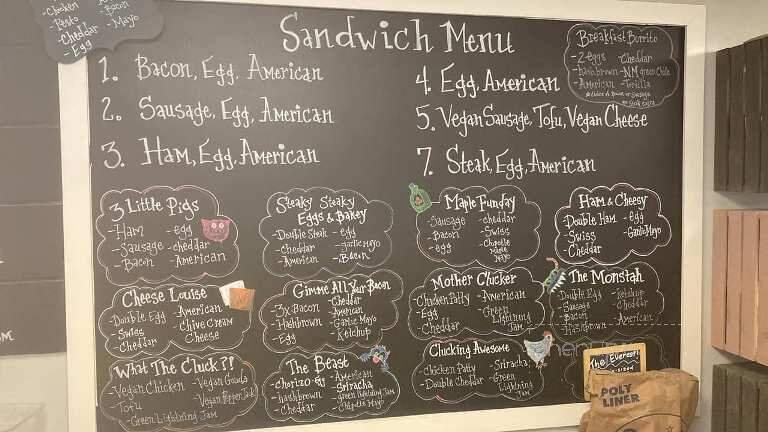 - Chicken
- Bacon
- Pesto
- Mayo
- Cheddar
- Egg
Sandwich Menu
1. Bacon, Egg, American
2. Sausage, Egg, American
3. Ham, Egg, American
4. Egg, American
5. Vegan Sausage, Tofu, Vegan Cheese
7. Steak, Egg, American
Breakfast Burrito
- 2 eggs - Cheddar
- hashbrown - NM green Chile
- American - Tortilla
3 Little Pigs
- Ham - egg
- Sausage - cheddar
- Bacon - American
Steaky Steaky
Eggs & Bakey
- Double Steak - egg
- Cheddar - garlic mayo
- American - Bacon
Maple Funday
- Sausage - cheddar
- Bacon - Swiss
- egg - Chipotle
Maple
Mayo
Ham & Cheesy
- Double Ham - egg
- Swiss - Garlic Mayo
- Cheddar
Cheese Louise
- Double Egg - American
- Swiss - Chive Cream
- Cheddar Cheese
Gimme All Your Bacon
- 3x Bacon - Cheddar
- Hashbrown - American
- Egg - Garlic Mayo
- Ketchup
Mother Clucker
- Chicken Patty - American
- Egg - Green
- Cheddar Lightning
Jam
The Monstah
- Double Egg - Ketchup
- Sausage - Cheddar
- Bacon - American
- Hashbrown
What The Cluck?!
- Vegan Chicken - Vegan Gouda
- Tofu - Vegan PepperJack
- Green Lightning Jam
The Beast
- Chorizo - American
- hashbrown - Sriracha
- Cheddar - green lightning Jam
- Chipotle Mayo
Clucking Awesome
- Chicken Patty - Sriracha
- Double Cheddar - Green
Lightning
Jam
The Everest
POLY
LINER